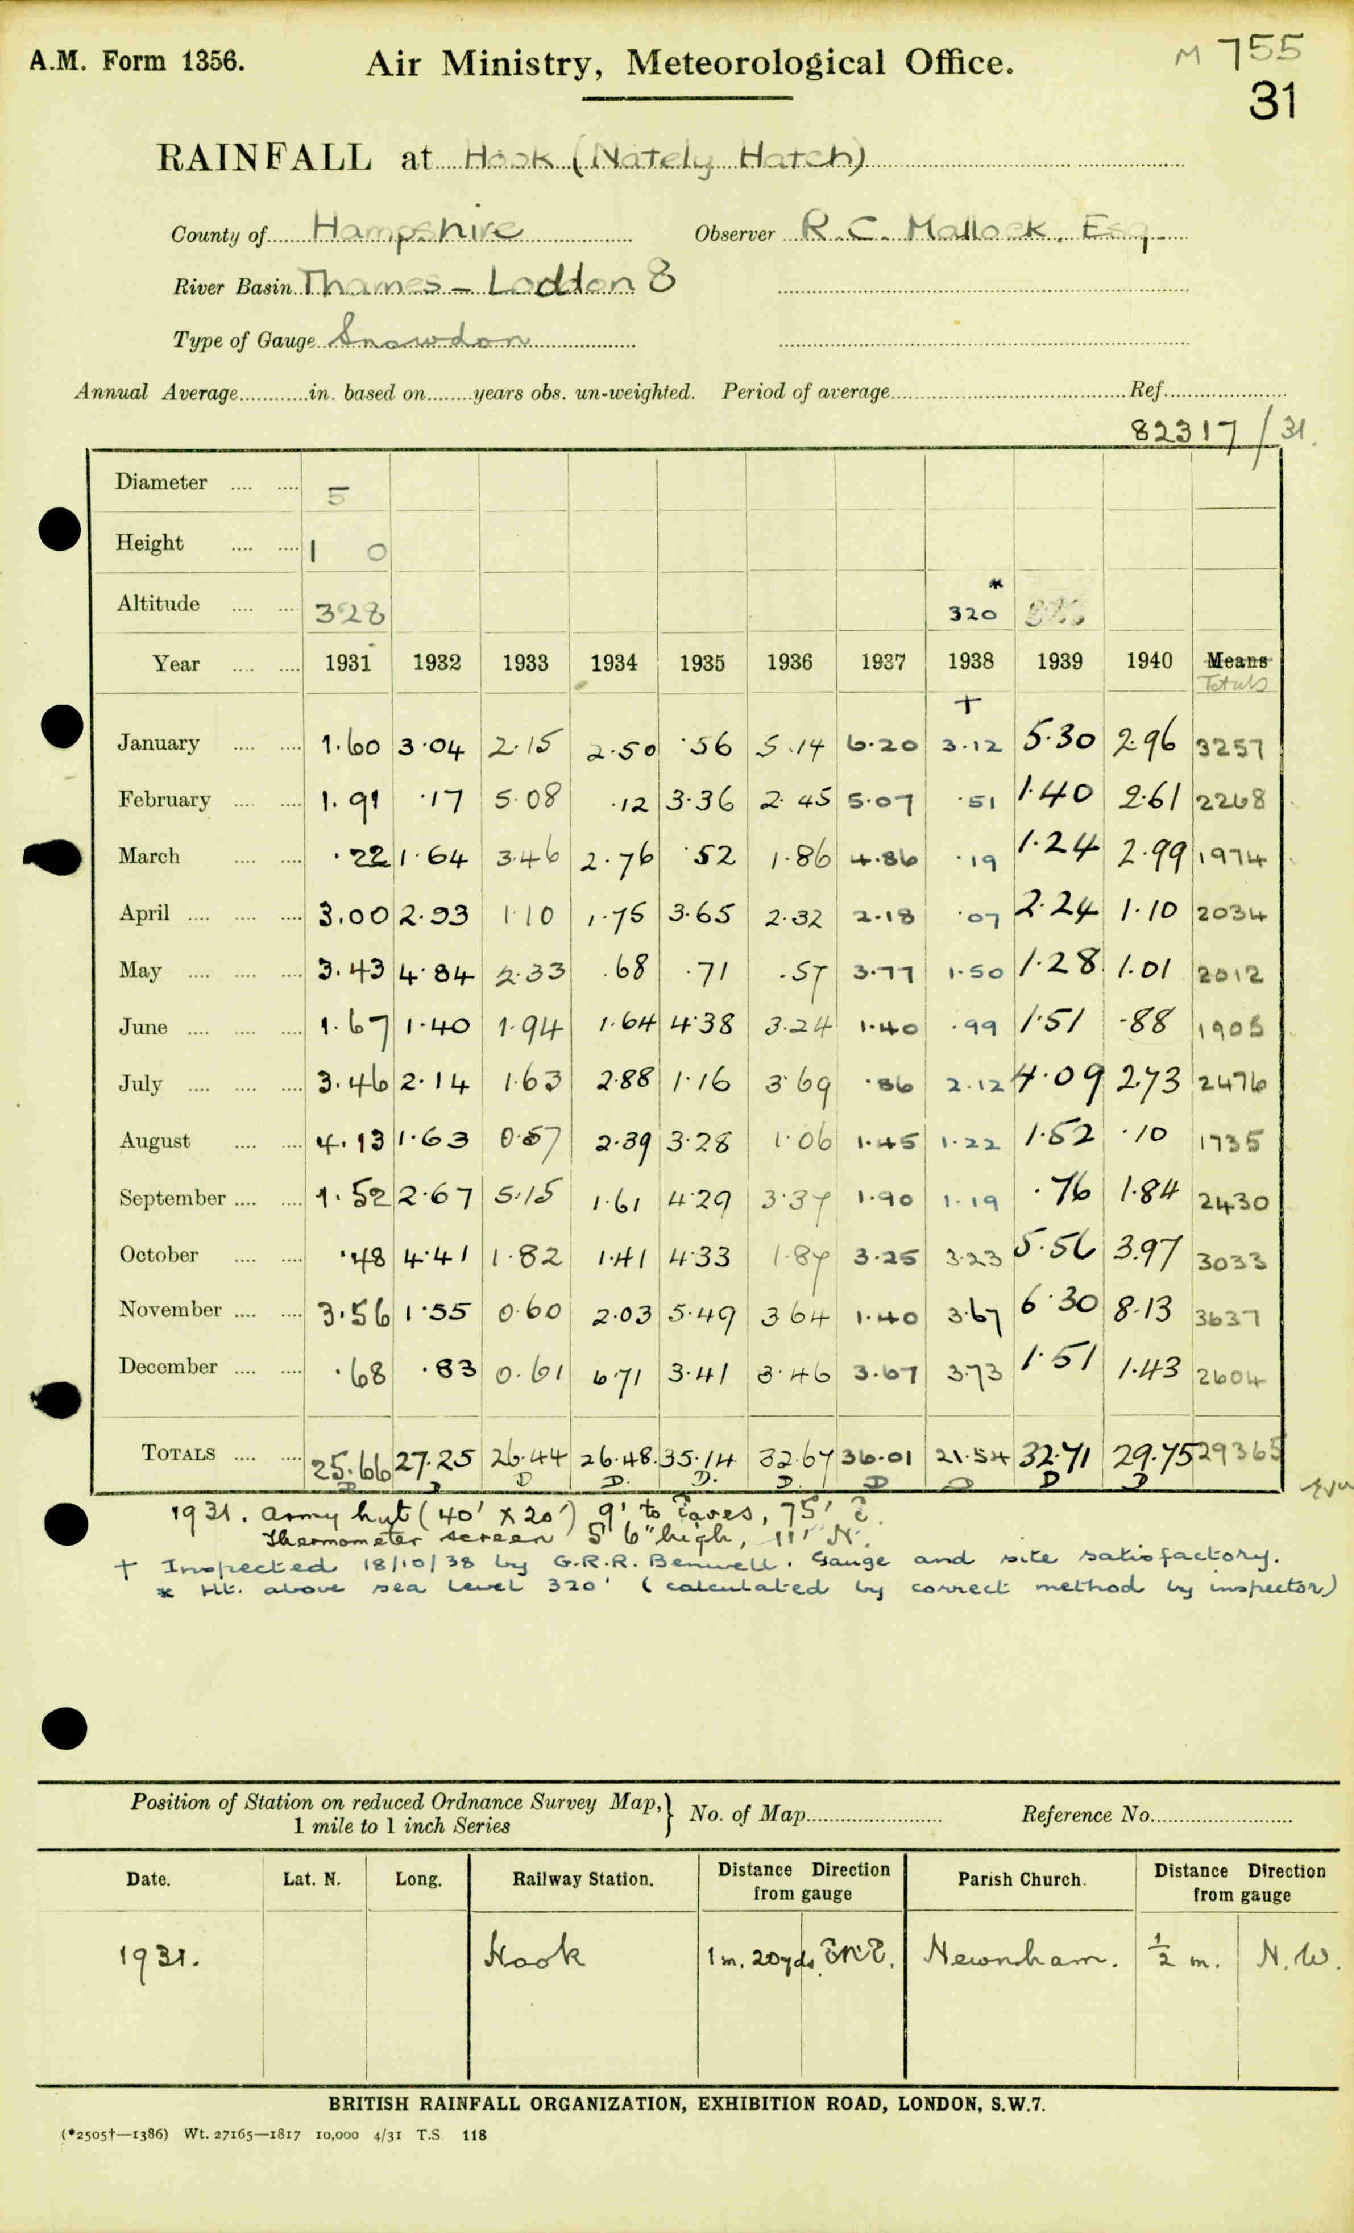 A.M. Form 1356. Air Ministry, Meteorological Office. M 755
31
RAINFALL at Hook (Nately Hatch)
County of Hampshire Observer R.C. Mallock, Esq.
River Basin Thames – Loddon 8
Type of Gauge Snowdon
Annual Average............in. based on........years obs. un-weighted. Period of average............ Ref............
82317/31.
Diameter .... .... 5
Height .... .... 1 0
*
Altitude .... .... 328 320
Year .... .... 1931 1932 1933 1934 1935 1936 1937 1938 1939 1940 Means
Totals
+
January .... .... 1.60 3.04 2.15 2.50 .56 5.14 6.20 3.12 5.30 2.96 3257
February .... .... 1.91 .17 5.08 .12 3.36 2.45 5.07 .51 1.40 2.61 2268
March .... .... .22 1.64 3.46 2.76 .52 1.86 4.86 .19 1.24 2.99 1974
April .... .... .... 3.00 2.93 1.10 1.75 3.65 2.32 2.18 .07 2.24 1.10 2034
May .... .... .... 3.43 4.84 2.33 .68 .71 .57 3.77 1.50 1.28 1.01 2012
June .... .... .... 1.67 1.40 1.94 1.64 4.38 3.24 1.40 .99 1.51 .88 1905
July .... .... .... 3.46 2.14 1.63 2.88 1.16 3.69 .86 2.12 4.09 2.73 2476
August .... .... 4.13 1.63 0.57 2.39 3.28 1.06 1.45 1.22 1.52 .10 1735
September .... .... 1.52 2.67 5.15 1.61 4.29 3.37 1.90 1.19 .76 1.84 2430
October .... .... .48 4.41 1.82 1.41 4.33 1.87 3.25 3.23 5.56 3.97 3033
November .... .... 3.56 1.55 0.60 2.03 5.49 3.64 1.40 3.67 6.30 8.13 3637
December .... .... .68 .83 0.61 6.71 3.41 3.46 3.67 3.73 1.51 1.43 2604
TOTALS .... .... 25.66 27.25 26.44 26.48. 35.14 32.67 36.01 21.54 32.71 29.75 29365
D D D D. D. D. D D D D
1931. Army hut (40' x 20') 9' to Eaves, 75' E.
Thermometer screen 5' 6" high, 11' N.
+ Inspected 18/10/38 by G.R.R. Benwell. Gauge and site satisfactory.
* Ht. above sea level 320' (calculated by correct method by inspector)
Position of Station on reduced Ordnance Survey Map,} No. of Map............ Reference No............
1 mile to 1 inch Series
Date. Lat. N. Long. Railway Station. Distance Direction from gauge Parish Church. Distance Direction from gauge
1931. Hook 1 m. 20yds. ENE. Newnham. ½ m. N.W.
BRITISH RAINFALL ORGANIZATION, EXHIBITION ROAD, LONDON, S.W.7.
(*2505†—1386) Wt. 27165—1817 10,000 4/31 T.S. 118